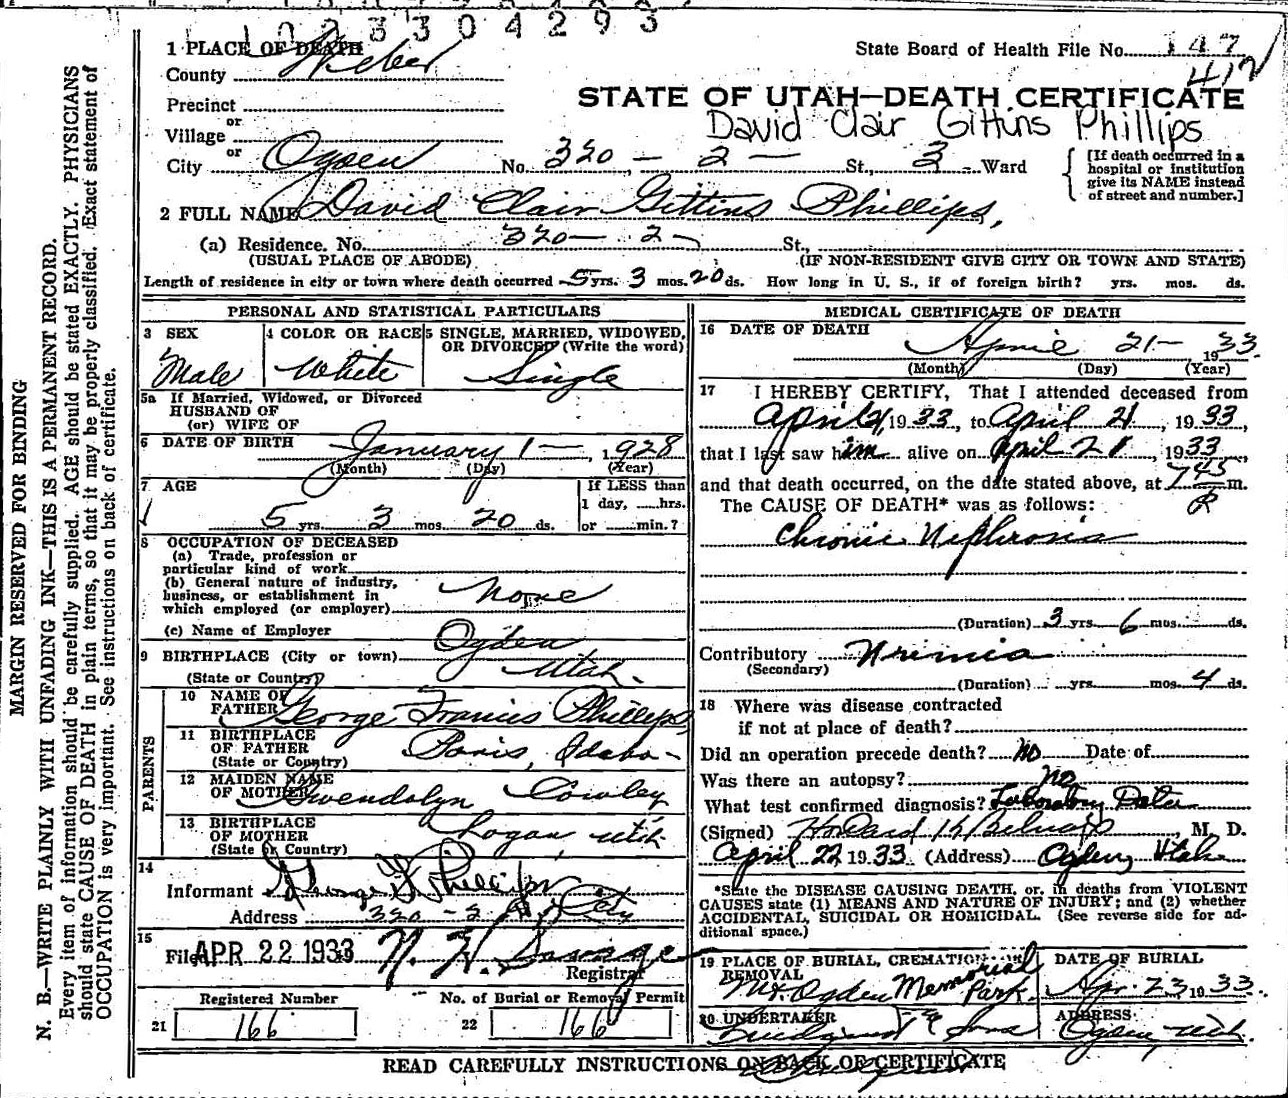 1 0 2 3 3 0 4 2 9 3
1 PLACE OF DEATH
State Board of Health File No. 147
412
County Weber
STATE OF UTAH—DEATH CERTIFICATE
Precinct
or
David Clair Gittins Phillips
Village
or
City Ogden No. 320 - 2 - St., 3 Ward
[If death occurred in a hospital or institution give its NAME instead of street and number.]
2 FULL NAME David Clair Gittins Phillips,
(a) Residence. No. 320 - 2 - St.,
(USUAL PLACE OF ABODE) (IF NON-RESIDENT GIVE CITY OR TOWN AND STATE)
Length of residence in city or town where death occurred 5 yrs. 3 mos. 20 ds. How long in U. S., if of foreign birth? yrs. mos. ds.
MARGIN RESERVED FOR BINDING
N. B.—WRITE PLAINLY WITH UNFADING INK—THIS IS A PERMANENT RECORD.
Every item of information should be carefully supplied. AGE should be stated EXACTLY. PHYSICIANS
should state CAUSE OF DEATH in plain terms, so that it may be properly classified. Exact statement of
OCCUPATION is very important. See instructions on back of certificate.
PERSONAL AND STATISTICAL PARTICULARS
3 SEX
Male
4 COLOR OR RACE
White
5 SINGLE, MARRIED, WIDOWED,
OR DIVORCED (Write the word)
Single
5a If Married, Widowed, or Divorced
HUSBAND OF
(or) WIFE OF
6 DATE OF BIRTH January 1 — , 1928
(Month) (Day) (Year)
7 AGE
If LESS than
1 day, hrs.
5 yrs. 3 mos. 20 ds. or min.?
8 OCCUPATION OF DECEASED
(a) Trade, profession or
particular kind of work
(b) General nature of industry,
business, or establishment in
which employed (or employer) None
(c) Name of Employer
9 BIRTHPLACE (City or town) Ogden
(State or Country) Utah.
PARENTS
10 NAME OF
FATHER George Francis Phillips,
11 BIRTHPLACE
OF FATHER Paris, Idaho -
(State or Country)
12 MAIDEN NAME
OF MOTHER Gwendolyn Cowley
13 BIRTHPLACE
OF MOTHER Logan, Utah
(State or Country)
14
Informant George F Phillips
Address 320 - 2 City
15
Filed APR 22 1933
Registrar
Registered Number
21 166
No. of Burial or Removal Permit
22 166
MEDICAL CERTIFICATE OF DEATH
16 DATE OF DEATH
April 21 — 1933
(Month) (Day) (Year)
17 I HEREBY CERTIFY, That I attended deceased from
April 21, 1933, to April 21, 1933,
that I last saw him alive on April 21, 1933,
and that death occurred, on the date stated above, at 7 45 P m.
The CAUSE OF DEATH* was as follows:
Chronic Nephrosis
(Duration) 3 yrs. 6 mos. ds.
Contributory Uremia
(Secondary)
(Duration) yrs. mos. 4 ds.
18 Where was disease contracted
if not at place of death?
Did an operation precede death? No Date of
Was there an autopsy? No
What test confirmed diagnosis? Laboratory Data
(Signed) Howard K Belnap, M. D.
April 22 1933 (Address) Ogden, Utah
*State the DISEASE CAUSING DEATH, or, in deaths from VIOLENT
CAUSES state (1) MEANS AND NATURE OF INJURY; and (2) whether
ACCIDENTAL, SUICIDAL OR HOMICIDAL. (See reverse side for ad-
ditional space.)
19 PLACE OF BURIAL, CREMATION OR
REMOVAL
Mt. Ogden Memorial Park.
DATE OF BURIAL
Apr. 23, 1933.
20 UNDERTAKER
& Sons
ADDRESS
Ogden, Utah.
READ CAREFULLY INSTRUCTIONS ON BACK OF CERTIFICATE